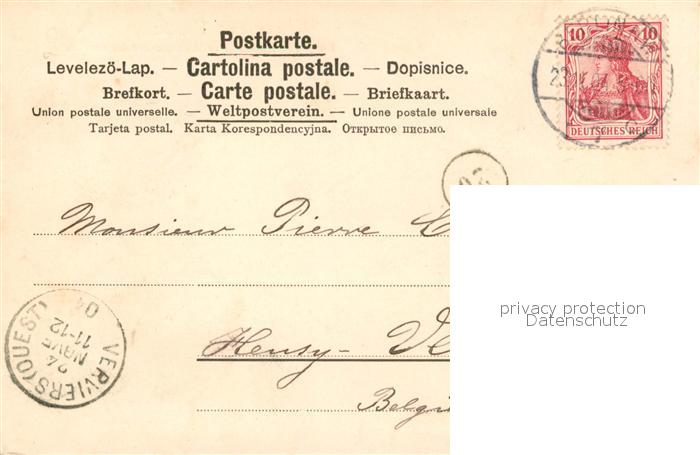 Postkarte.
Levelezö-Lap. — Cartolina postale. — Dopisnice.
Brefkort. — Carte postale. — Briefkaart.
Union postale universelle. — Weltpostverein. — Unione postale universale
Tarjeta postal. Karta Korespondencyjna. Открытое письмо.
10 10
DEUTSCHES REICH
Monsieur Pierre
privacy protection
Datenschutz
VERVIERS (OUEST)
24
NOVE
11-12
04
Heusy-
Belgi